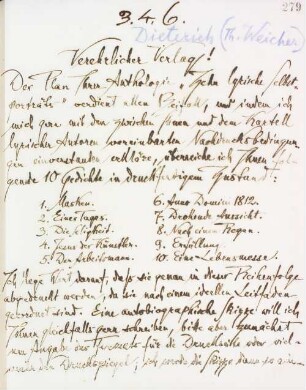 279
3.4.6.
Dieterich (Th. Weicher)
Verehrlicher Verlag!
Der Plan Ihrer Anthologie „Zehn lyrische Selbst-
porträts" verdient allen Beifall, und indem ich
mich gern mit den zwischen Ihnen und dem Kartell
lyrischer Autoren vereinbarten Nachdrucksbedingun-
gen einverstanden erkläre, überreiche ich Ihnen fol-
gende 10 Gedichte in druckfertigem Zustand:
1. Masken.
2. Eines Tages.
3. Die
4. der Künstler.
5. Der Arbeitsmann.
6. Anno Domini 1812.
7. Drohende Aussicht.
8. Nach einem Regen.
9.
10. Eine Lebensmesse.
Ich lege Wert darauf, daß sie genau in dieser Reihenfolge
abgedruckt werden, da sie nach einem idealen Leitfaden
geordnet sind. Eine autobiographische Skizze will ich
Ihnen gleichfalls gern schreiben, bitte aber zunächst
um Angabe des für die Druckseite oder viel-
den Druckspiegel; ich werde die Skizze dann so ein-